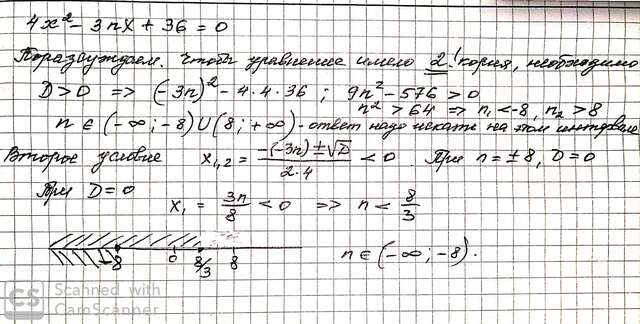 4x² - 3nx + 36 = 0
Поразсуждаем. Чтобы уравнение имело 2! корня, необходимо
D > 0 => (-3n)² - 4·4·36 ; 9n² - 576 > 0
n² > 64 => n₁ < -8, n₂ > 8
n ∈ (-∞; -8) ∪ (8; +∞) - ответ надо искать на этом интервале
Второе условие x₁,₂ = (-(-3n) ± √D) / (2·4) < 0 При n = ±8, D = 0
При D = 0
x₁ = 3n/8 < 0 => n < 8/3
-8 0 8/3 8 n ∈ (-∞; -8).
CS Scanned with
CamScanner